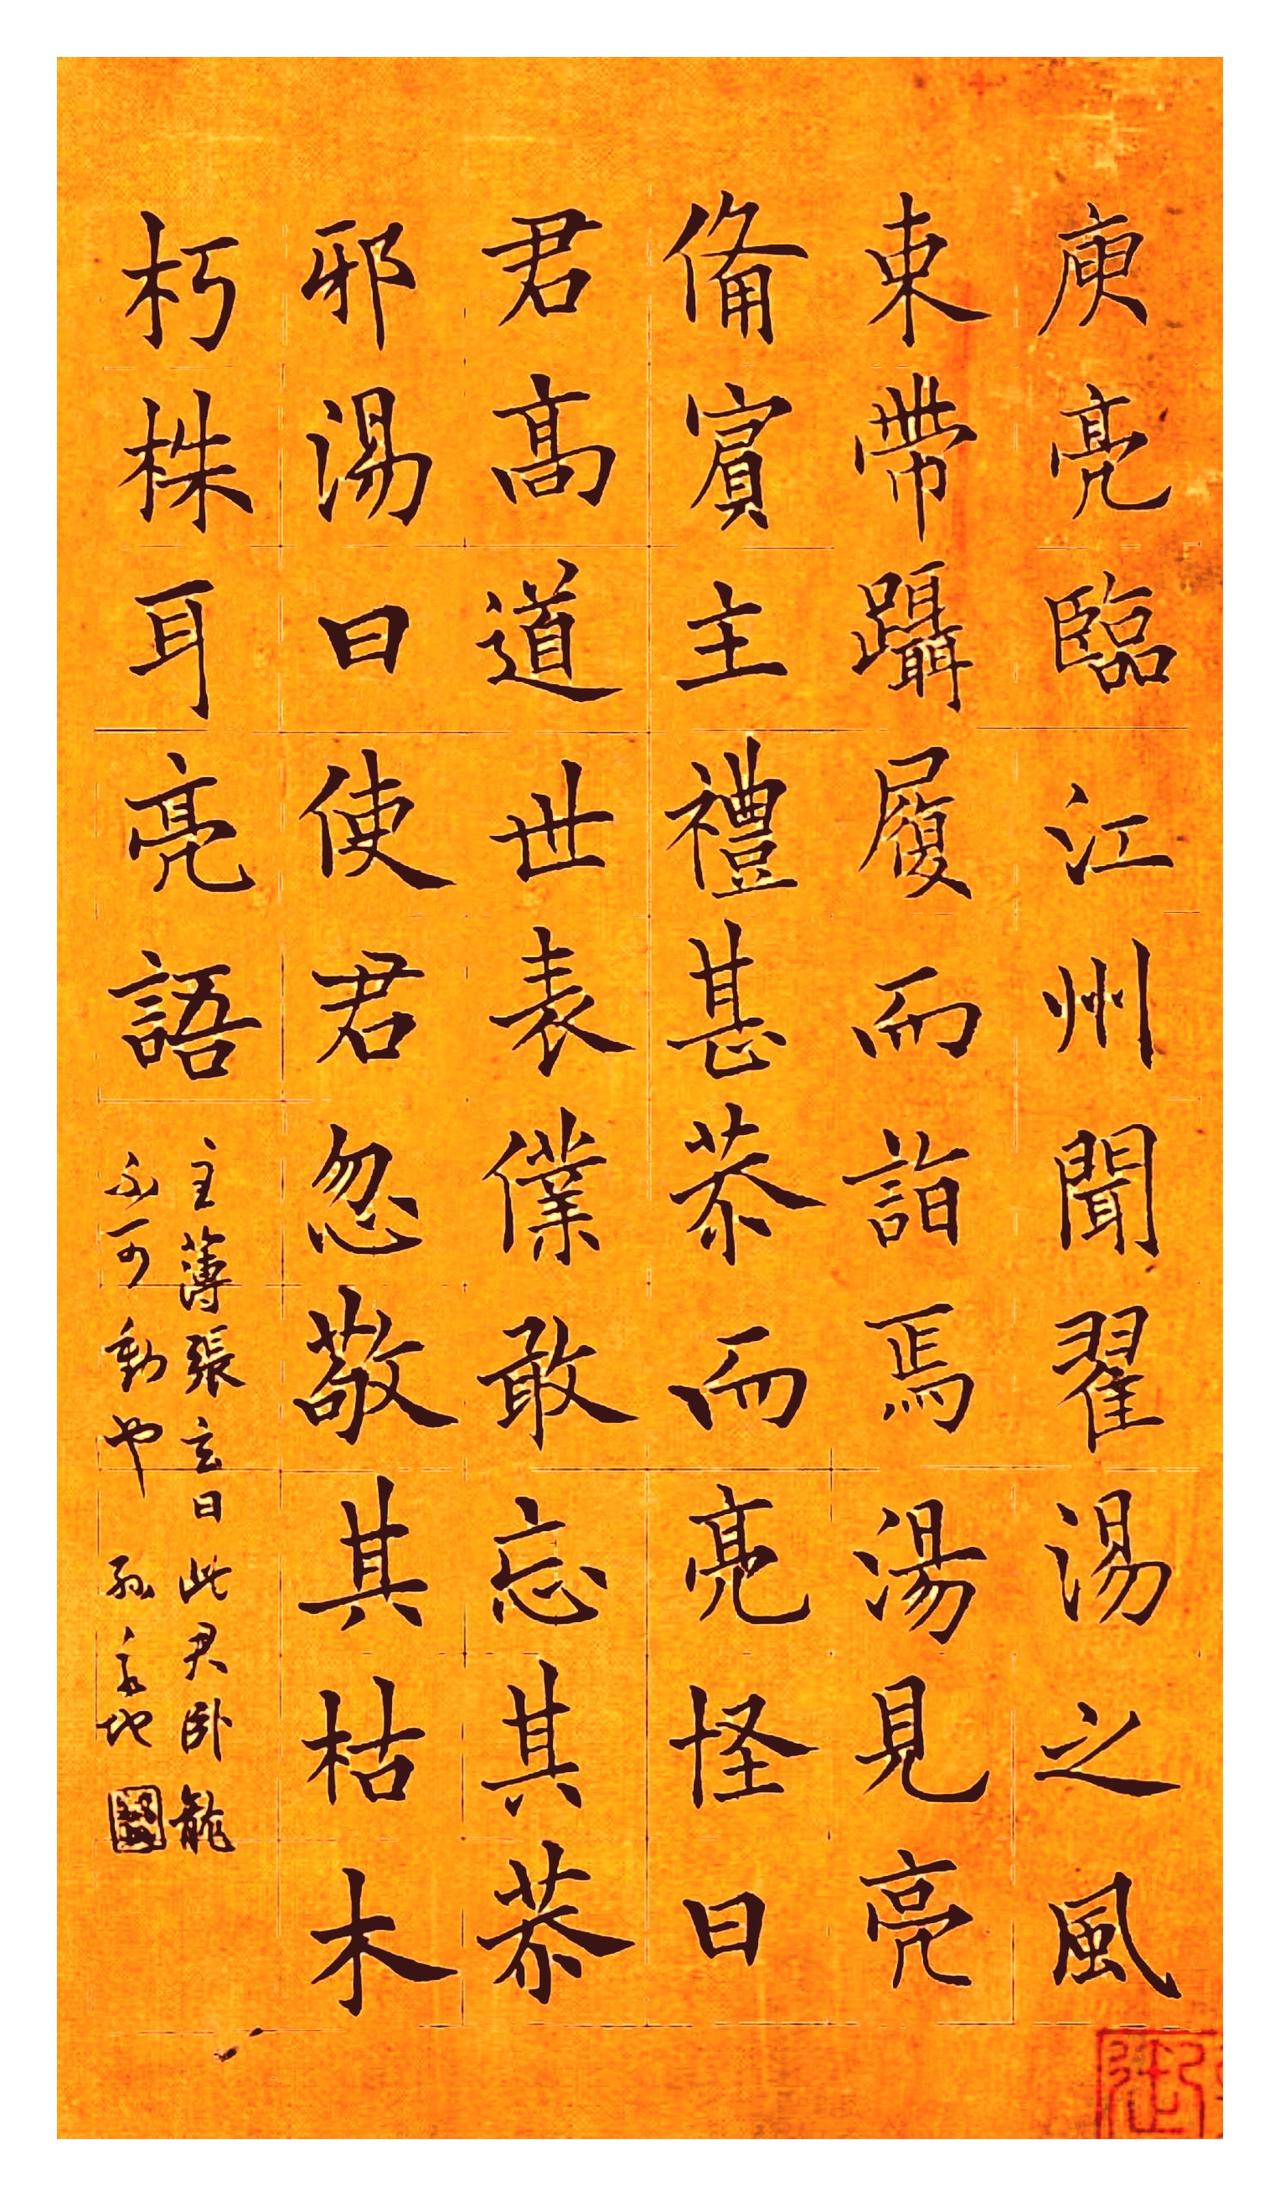 庾亮臨江州聞翟湯之風
束帶躡履而詣焉湯見亮
備賓主禮甚恭而亮怪曰
君高道世表僕敢忘其恭
邪湯曰使君忽敬其枯木
朽株耳亮語
主薄張玄曰此君臥龍
不可動也